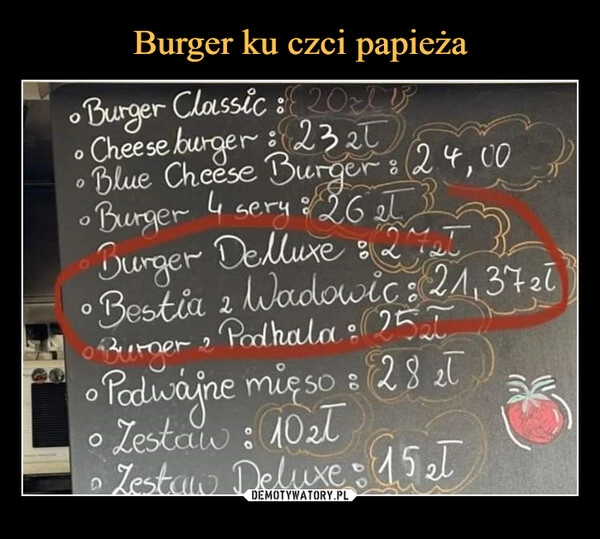 Burger ku czci papieża
Burger Classic: 20 zł
Cheeseburger: 23 zł
Blue Cheese Burger: 24,00
Burger 4 sery: 26 zł
Burger Delluxe: 27zł
Bestia z Wadowic: 21,37zł
Burger z Podhala: 25zł
Podwójne mięso: 28 zł
Zestaw: 10zł
Zestaw Deluxe: 15zł
DEMOTYWATORY.PL